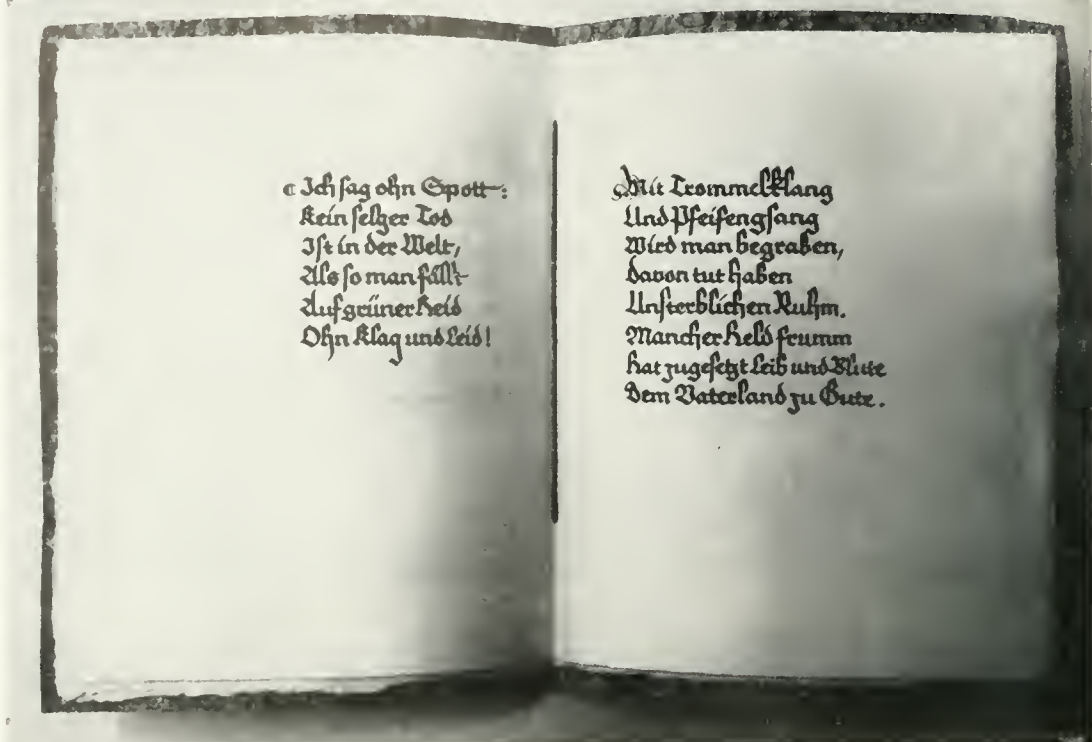 Ich sag ohn Spott:
Kein selger Tod
Ist in der Welt,
Als so man fällt
Auf grüner Heid
Ohn Klag und Leid!
Mit Trommelklang
Und Pfeifengsang
Wird man begraben,
Davon tut haben
Unsterblichen Ruhm.
Mancher Held frumm
Hat zugesetzt Leib und Blute
Dem Vaterland zu Gute.